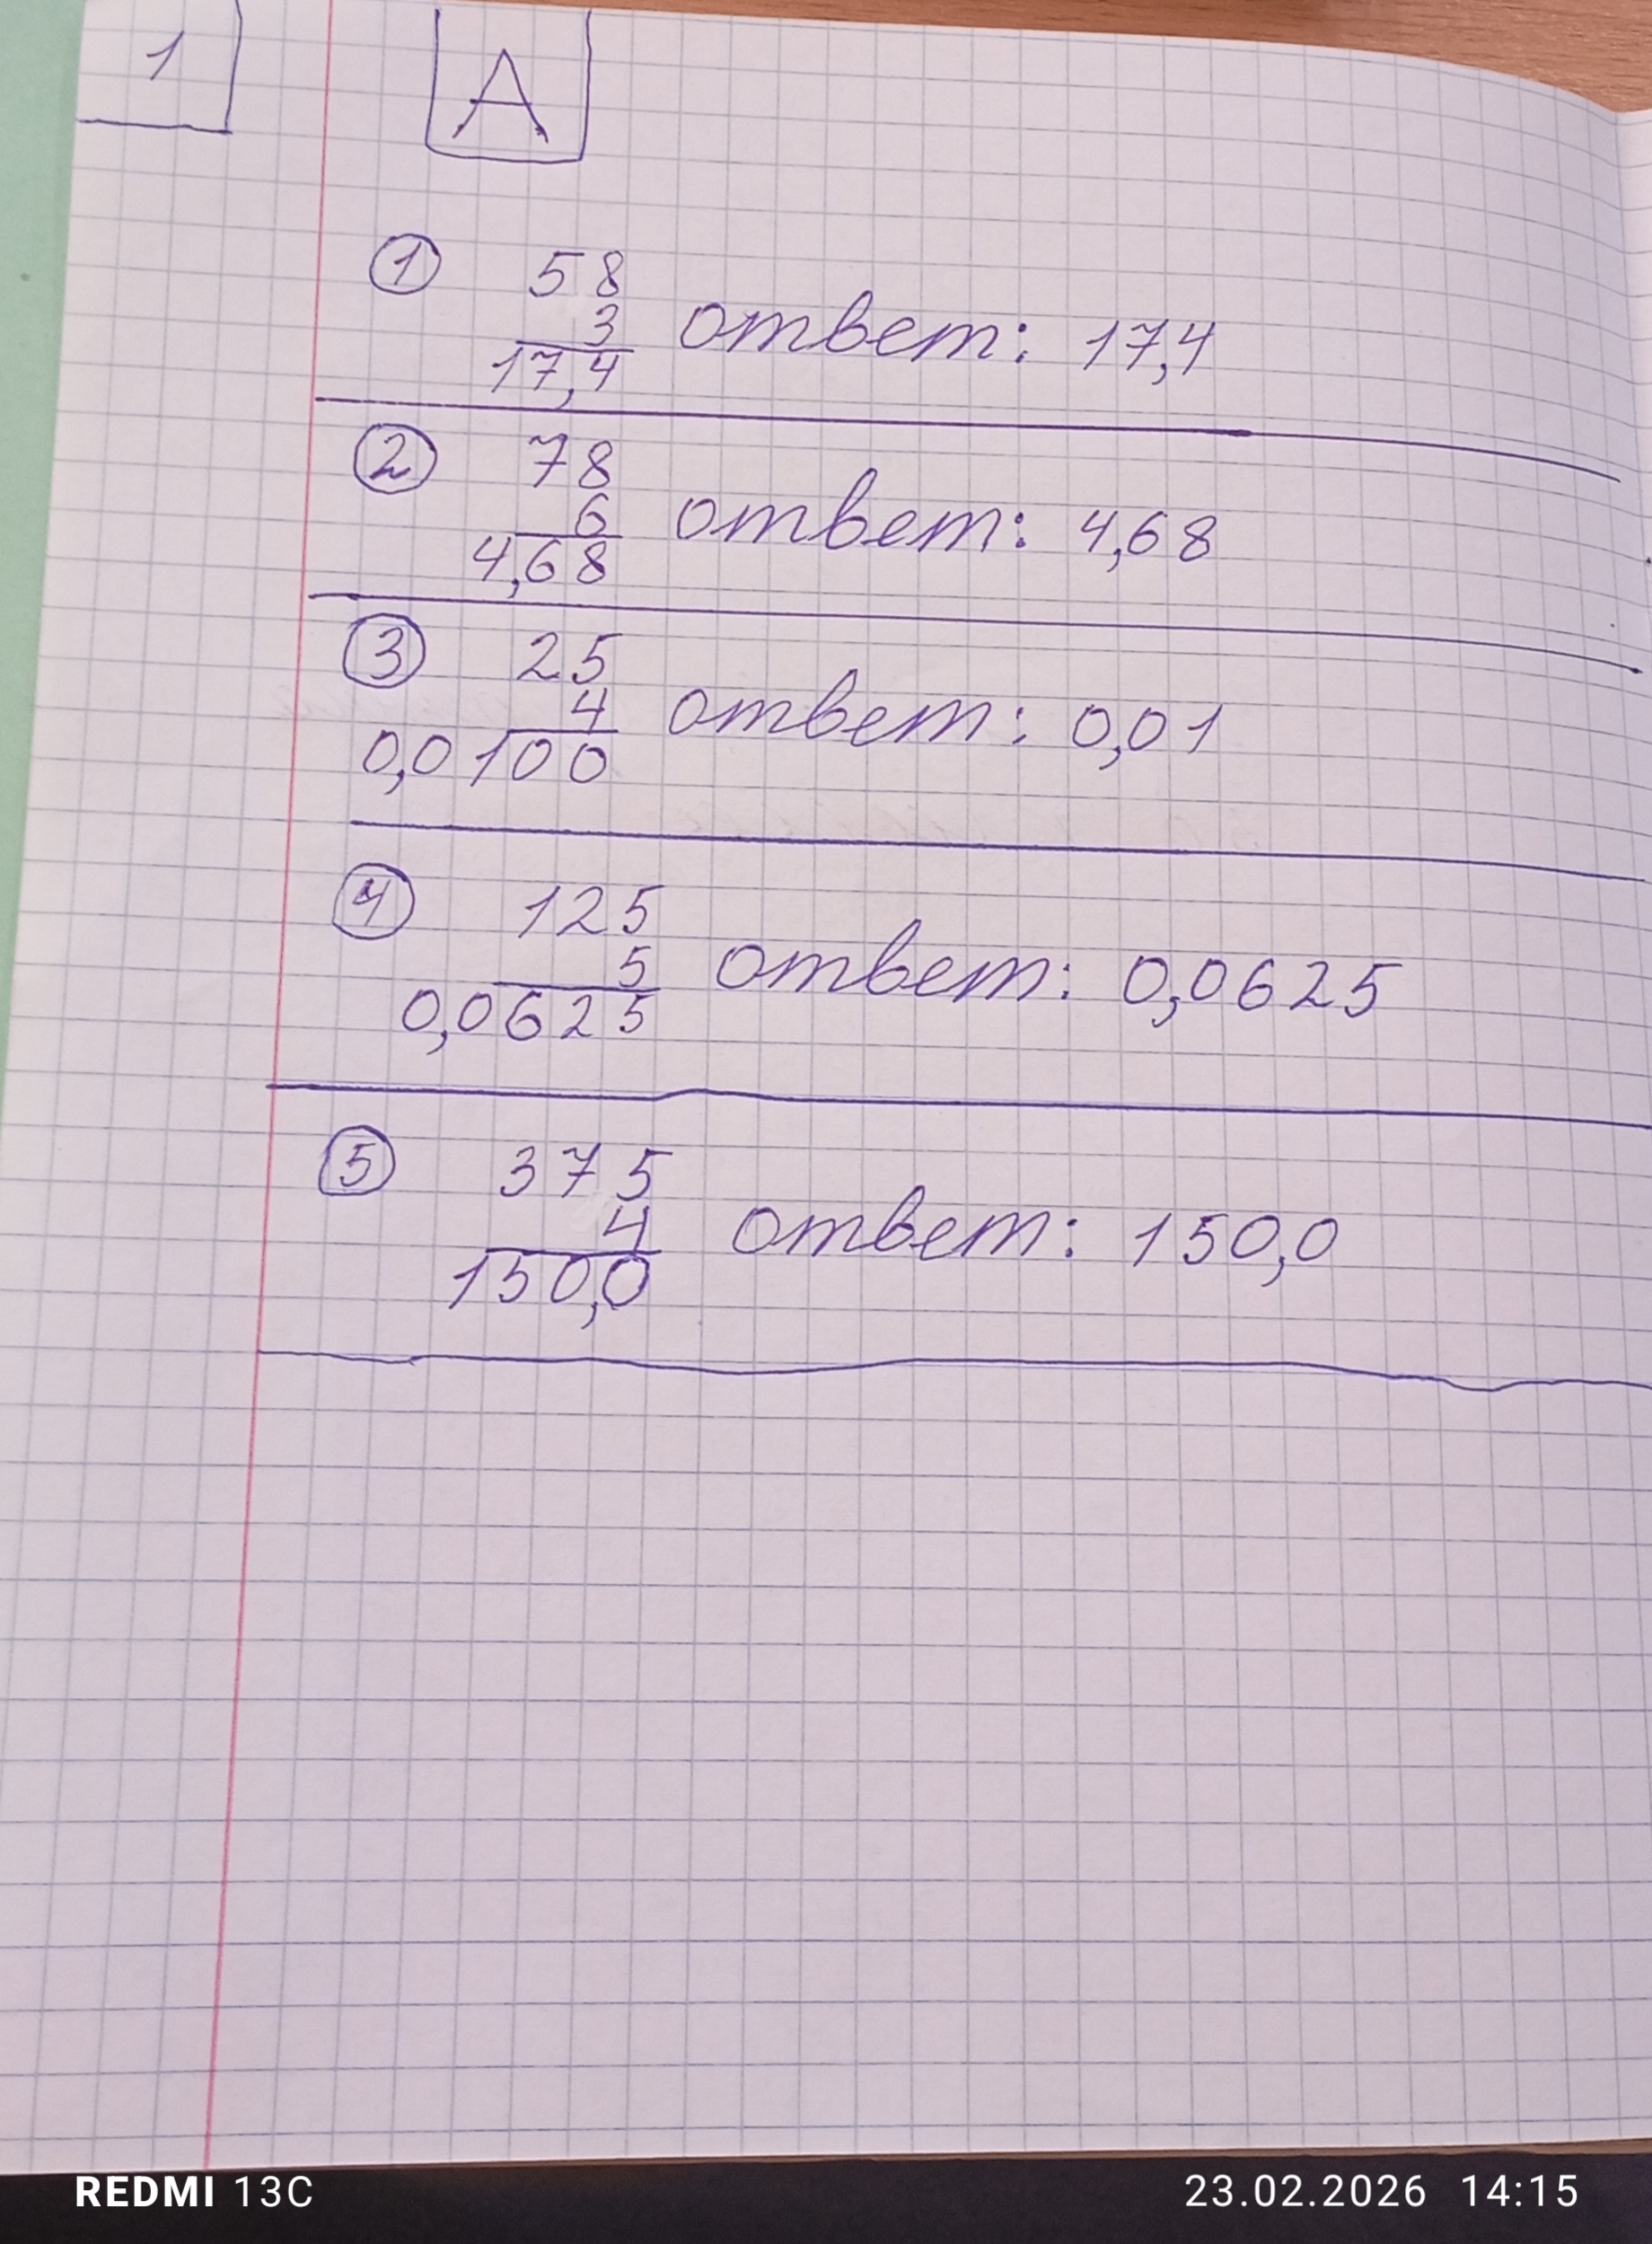 1
А
1 58
3 ответ: 17,4
17,4
2 78
6 ответ: 4,68
4,68
3 25
4 ответ: 0,01
0,0100
4 125
5 ответ: 0,0625
0,0625
5 375
4 ответ: 150,0
150,0
REDMI 13C 23.02.2026 14:15